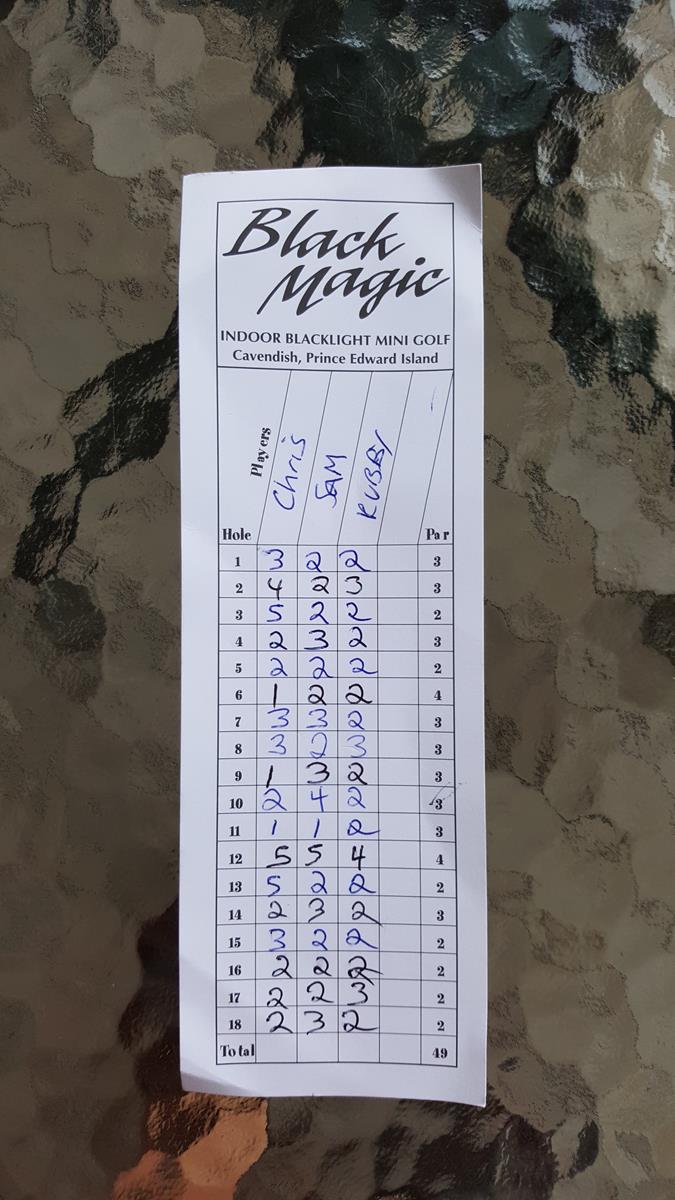 Black
Magic
INDOOR BLACKLIGHT MINI GOLF
Cavendish, Prince Edward Island
Players Chris SAM RUBBY
Hole Par
1 3 2 2 3
2 4 2 3 3
3 5 2 2 2
4 2 3 2 3
5 2 2 2 2
6 1 2 2 4
7 3 3 2 3
8 3 2 3 3
9 1 3 2 3
10 2 4 2 3
11 1 1 2 3
12 5 5 4 4
13 5 2 2 2
14 2 3 2 3
15 3 2 2 2
16 2 2 2 2
17 2 2 3 2
18 2 3 2 2
Total 49